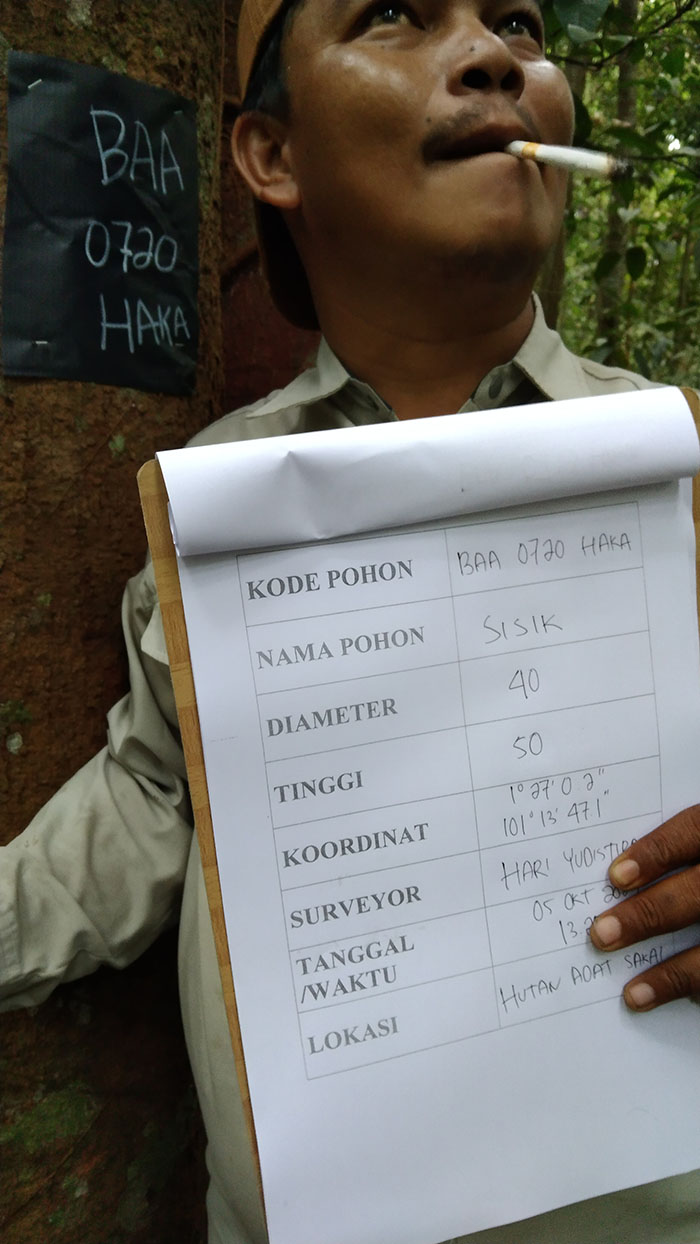 BAA
0720
HAKA
KODE POHON BAA 0720 HAKA
NAMA POHON SISIK
DIAMETER 40
TINGGI 50
KOORDINAT 1° 27' 0.2"
101° 13' 47.1"
SURVEYOR HARI
TANGGAL 05 OKT
/WAKTU
LOKASI HUTAN ADAT SAKAI